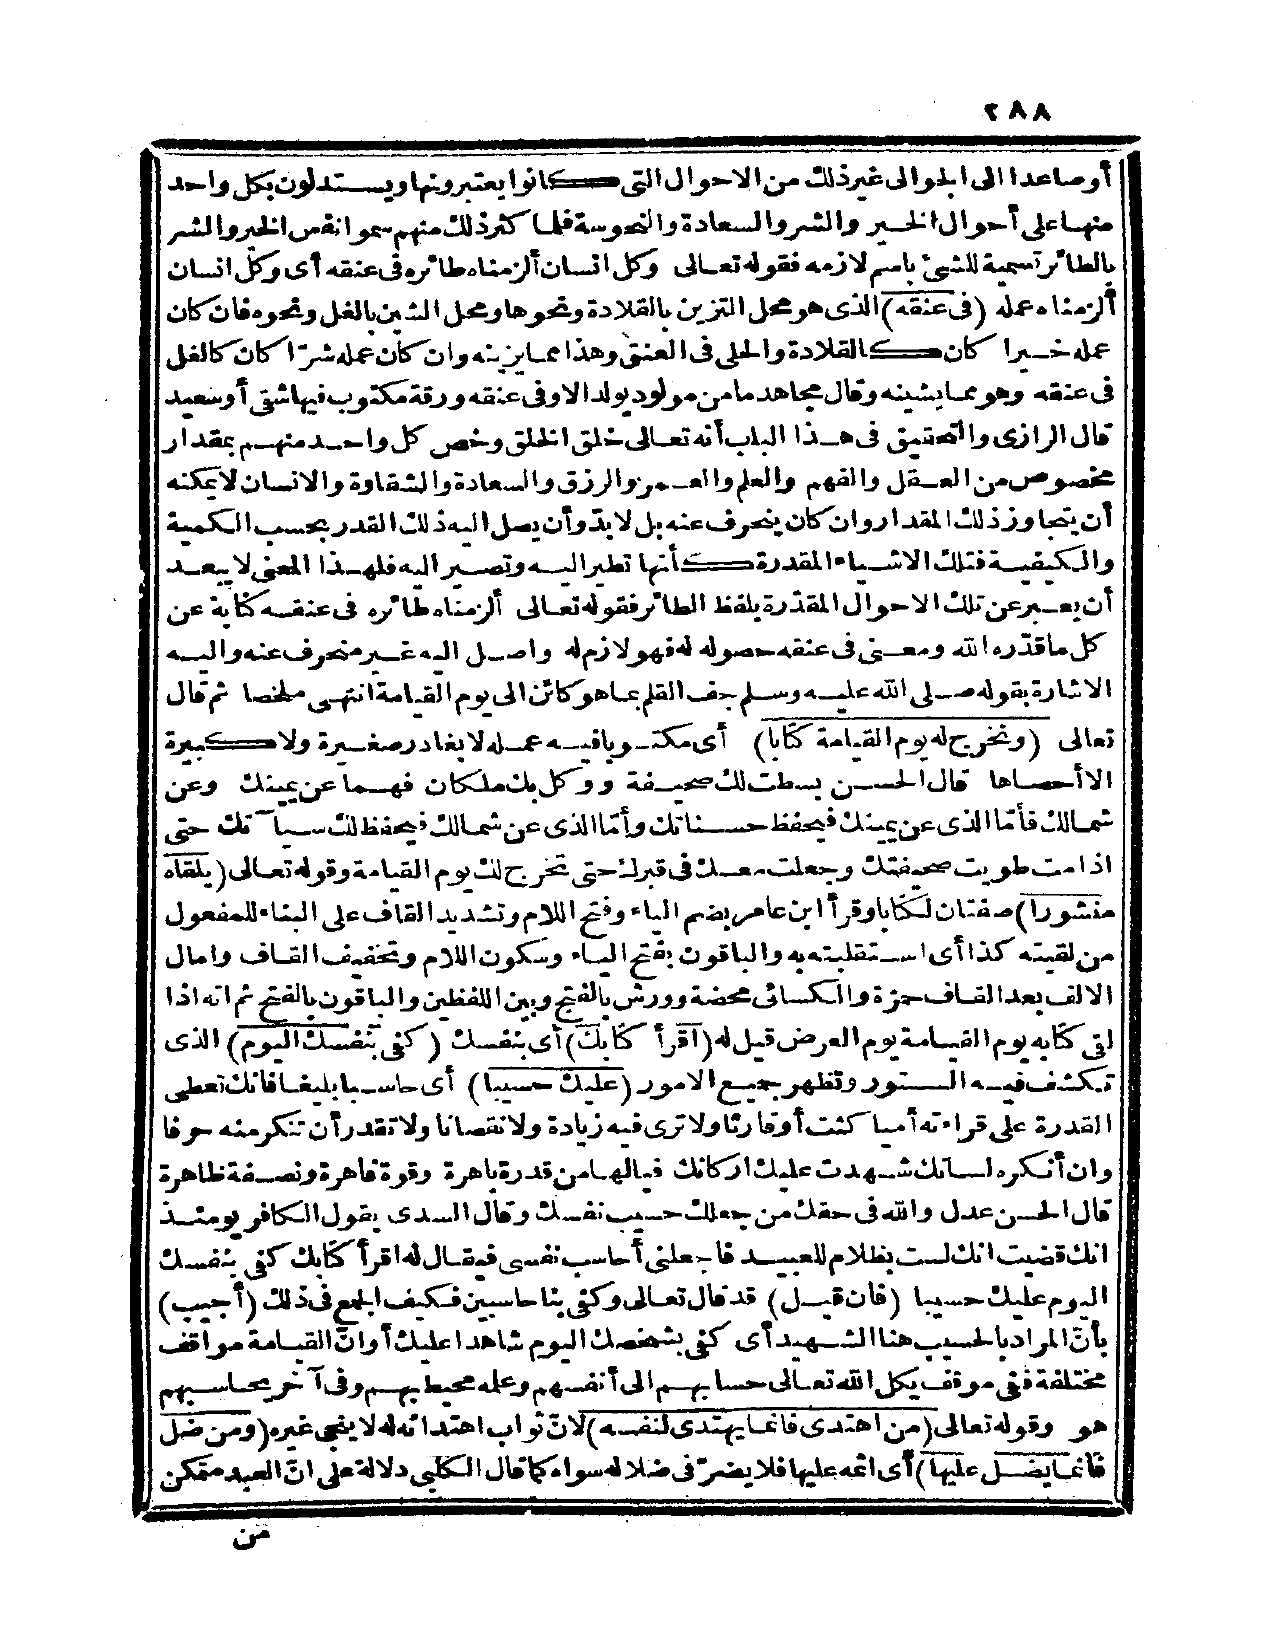 ٢٨٨
أو صاعدا الى الجو الى غير ذلك من الاحوال التى كانوا يعتبرونها ويستدلون بكل واحد
منها على أحوال الخير والشر والسعادة والنحوسة فلما كثر ذلك منهم سموا نفس الخير والشر
بالطائر تسمية للشئ باسم لازمه فقوله تعالى وكل انسان ألزمناه طائره فى عنقه أى وكل انسان
ألزمناه عمله (فى عنقه) الذى هو محل التزين بالقلادة ونحوها ومحل الشين بالغل ونحوه فان كان
عمله خيرا كان كالقلادة والحلى فى العنق وهذا مما يزينه وان كان عمله شرّا كان كالغل
فى عنقه وهو مما يشينه وقال مجاهد ما من مولود يولد الا وفى عنقه ورقة مكتوب فيها شقى أو سعيد
قال الرازى والتحقيق فى هذا الباب أنه تعالى خلق الخلق وخص كل واحد منهم بمقدار
مخصوص من العقل والفهم والعلم والعمر والرزق والسعادة والشقاوة والانسان لا يمكنه
أن يتجاوز ذلك المقدار وان كان ينحرف عنه بل لا بدّ وأن يصل اليه ذلك القدر بحسب الكمية
والكيفية فتلك الاشياء المقدرة كأنها تطير اليه وتصير اليه فلهذا المعنى لا يبعد
أن يعبر عن تلك الاحوال المقدّرة بلفظ الطائر فقوله تعالى ألزمناه طائره فى عنقه كناية عن
كل ما قدّره الله ومعنى فى عنقه حصوله له فهو لازم له واصل اليه غير منحرف عنه واليه
الاشارة بقوله صلى الله عليه وسلم جف القلم بما هو كائن الى يوم القيامة انتهى ملخصا ثم قال
تعالى (ونخرج له يوم القيامة كتابا) أى مكتوبا فيه عمله لا يغادر صغيرة ولا كبيرة
الا أحصاها قال الحسن بسطت لك صحيفة ووكل بك ملكان فهما عن يمينك وعن
شمالك فأمّا الذى عن يمينك فيحفظ حسناتك وأمّا الذى عن شمالك فيحفظ لك سيآتك حتى
اذا مت طويت صحيفتك وجعلت معك فى قبرك حتى تخرج لك يوم القيامة وقوله تعالى (يلقاه
منشورا) صفتان لكتابا وقرأ ابن عامر بضم الياء وفتح اللام وتشديد القاف على البناء للمفعول
من لقيته كذا أى استقلبته به والباقون بفتح الياء وسكون اللام وتخفيف القاف وامال
الالف بعد القاف حمزة والكسائى محضة وورش بالفتح وبين اللفظين والباقون بالفتح ثم انه اذا
لقى كتابه يوم القيامة يوم العرض قيل له (اقرأ كتابك) أى بنفسك (كفى بنفسك اليوم) الذى
تكشف فيه الستور وتظهر جميع الامور (عليك حسيبا) أى حاسبا بليغا فانك تعطى
القدرة على قراءته أميا كنت أو قارئا ولا ترى فيه زيادة ولا نقصانا ولا تقدر أن تنكر منه حرفا
وان أنكره لسانك شهدت عليك اركانك فيالها من قدرة باهرة وقوة قاهرة ونصفة ظاهرة
قال الحسن عدل والله فى حقك من جعلك حسيب نفسك وقال السدى يقول الكافر يومئذ
انك قضيت انك لست بظلام للعبيد فاجعلنى أحاسب نفسى فيقال له اقرأ كتابك كفى بنفسك
اليوم عليك حسيبا (فان قيل) قد قال تعالى وكفى بنا حاسبين فكيف الجمع فى ذلك (أجيب)
بأنّ المراد بالحسيب هنا الشهيد أى كفى بشخصك اليوم شاهدا عليك أو انّ القيامة مواقف
مختلفة ففى موقف يكل الله تعالى حسابهم الى أنفسهم وعلمه محيط بهم وفى آخر يحاسبهم
هو وقوله تعالى (من اهتدى فانما يهتدى لنفسه) لانّ ثواب اهتدائه له لا ينجى غيره (ومن ضل
فانما يضل عليها) أى اثمه عليها فلا يضرّ فى ضلاله سواه كما قال الكلبى دلالة على انّ العبد متمكن
من